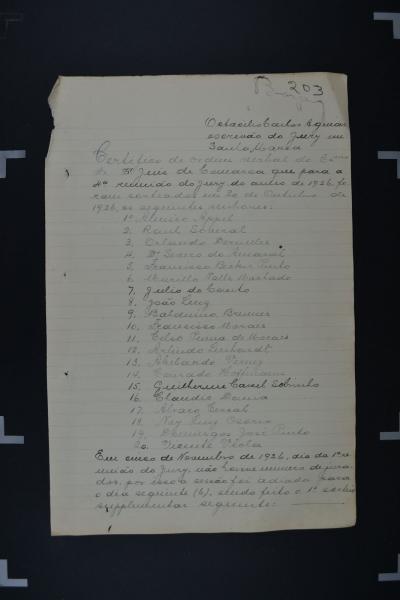 203
Octacilio Carlos Aguiar
escrivão do Jury em
Santa Maria
Certifico de ordem verbal do Exmo
Sr. Dr. Juiz de Comarca que para a
4ª reunião do Jury do anno de 1926, fo
ram sorteados em 20 de Outubro de
1926, os seguintes senhores:
1º Almiro Appel
2. Raul Soveral
3. Orlando
4. Dr Severo do Amaral
5. Francisco Becker Pinto
6. Murillo Valle Machado
7. Julio do Couto
8. João Luiz
9. Balduino
10. Francisco Moraes
11. Celso Penna de Moraes
12. Arlindo Leonhardt
13. Abelardo
14. Conrado Hoffmann
15. Guilherme Cassel Sobrinho
16. Claudio
17. Alvaro
18. Ney Luiz Osorio
19. Domingos José Pinto
20. Vicente
Em cinco de Novembro de 1926, dia da 1ª re
união do Jury, não houve numero de jura
dos, por isso a sessão foi adiada para
o dia seguinte (6), sendo feito o 1º sorteio
supplementar seguinte: